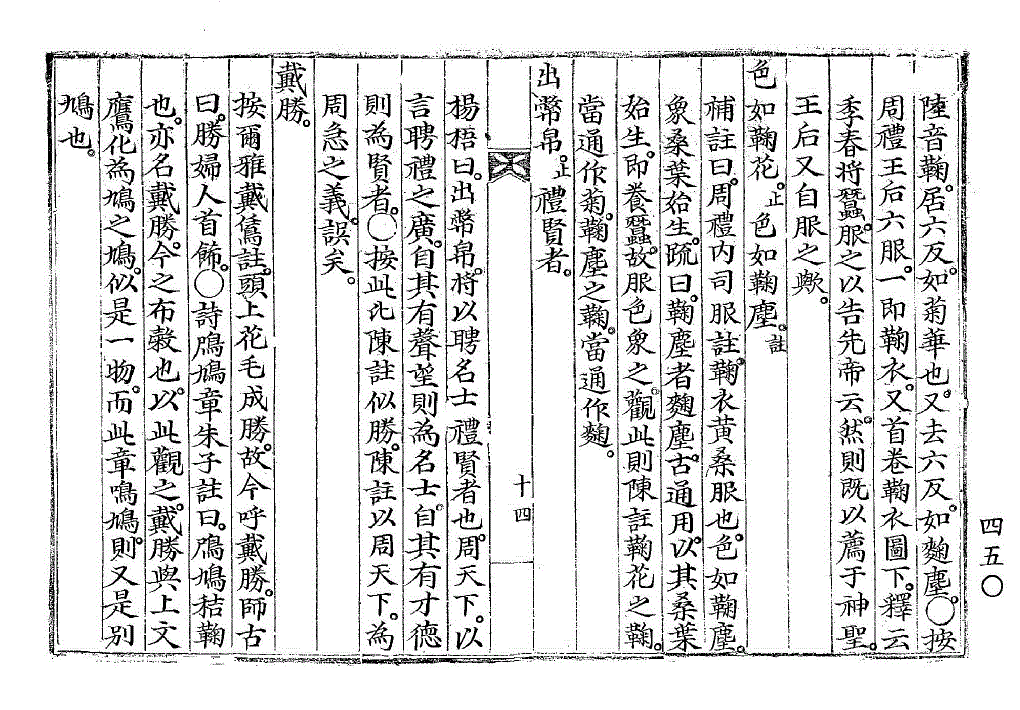 陸音鞠。居六反。如菊華也。又去六反。如麴塵。○按
周禮王后六服。一即鞠衣。又首卷鞠衣圖下。釋云
季春將蠶。服之以告先帝云。然則既以薦于神聖。
王后又自服之歟。
色如鞠花。止色如鞠塵。註
補註曰。周禮内司服註。鞠衣黃桑服也。色如鞠塵。
象桑葉始生。疏曰。鞠塵者麴塵。古通用。以其桑葉
始生。即養蠶。故服色象之。觀此則陳註鞠花之鞠。
當通作菊。鞠塵之鞠。當通作麴。
出幣帛。止禮賢者。
楊梧曰。出幣帛。將以聘名士禮賢者也。周天下。以
言聘禮之廣。自其有聲望則為名士。自其有才德
則為賢者。○按此比陳註似勝。陳註以周天下。為
周急之義。誤矣。
戴勝。
按爾雅戴鵀註。頭上花毛成勝。故今呼戴勝。師古
曰。勝婦人首飾。○詩鳲鳩章朱子註曰。鳲鳩秸鞠
也。亦名戴勝。今之布穀也。以此觀之。戴勝與上文
鷹化為鳩之鳩。似是一物。而此章鳴鳩。則又是別
鳩也。
十四
四五〇